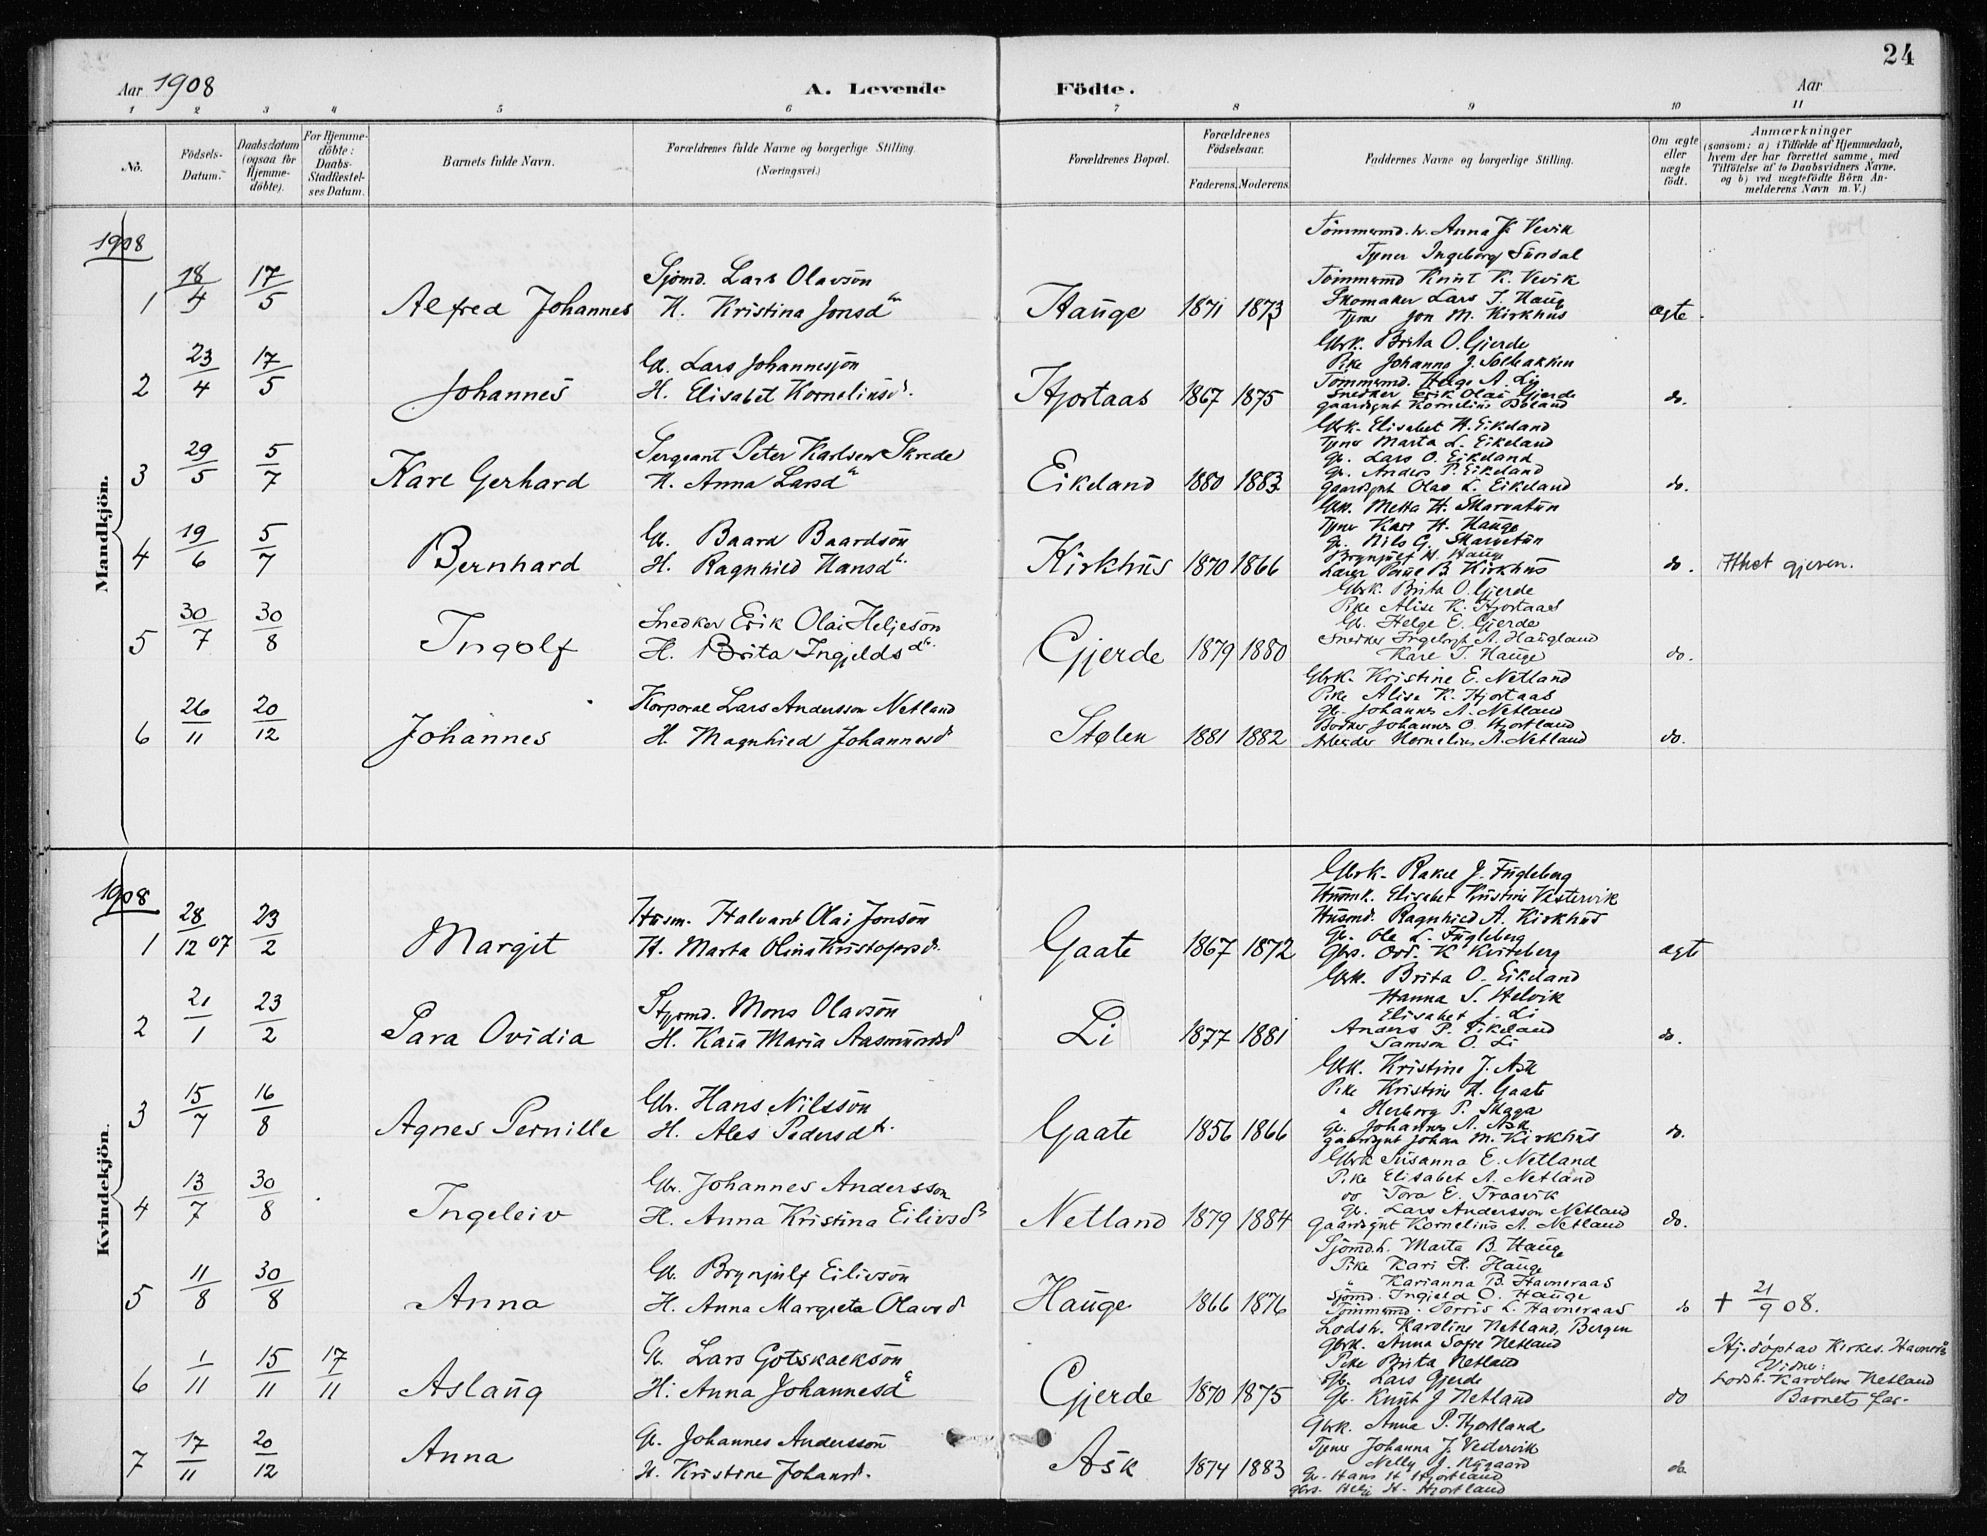 24
Aar 1908
A. Levende Födte.
Aar
1 2 3 4 5 6 7 8 9 10 11
No.
Födsels-Datum.
Daabsdatum (ogsaa for Hjemme-döbte).
For Hjemme-döbte: Daabs-Stadfæstel-ses Datum.
Barnets fulde Navn.
Forældrenes fulde Navne og borgerlige Stilling.
(Næringsvei.)
Forældrenes Bopæl.
Forældrenes Födselsaar.
Faderens. Moderens.
Faddernes Navne og borgerlige Stilling.
Om ægte eller uægte födt.
Anmærkninger
(saasom: a) i Tilfælde af Hjemmedaab, hvem der har forrettet samme, med Tilföielse af to Daabsvidners Navne. og b) ved uægtefödte Börn An-melderens Navn m. V.)
Mandkjön.
1908
1 18/4 17/5 Alfred Johannes
Sjömd. Lars Olavsön
H. Kristina Jonsd
Hauge 1871 1873
Tömmermd.h. Anna K. Vevik
Tjener Ingeborg Sundal
Tömmermd Knut K. Vevik
Skomaker Lars J. Hauge
Tjener Jon M. Kirkhus
ægte.
2 23/4 17/5 Johannes
Gb. Lars Johannessön
H. Elisabet Korneliusd.
Hjortaas 1867 1875
Gbrk. Brita O. Gjerde
Pike Johanna J. Solbakken
Tömmermd. Helge A. Li
Snedker Erik Olai Gjerde
gaardsgut Kornelius
do.
3 29/5 5/7 Kare Gerhard
Sergeant Peter Karlsen Skrede
H. Anna Larsd
Eikeland 1880 1883
Gbrk. Elisabet H. Eikeland
Tjener Marta L. Eikeland
Gb. Lars O. Eikeland
Gb. Anders P. Eikeland
gaardsgut Olav L. Eikeland
do.
4 19/6 5/7 Bernhard
Gb. Baard Baardsön
H. Ragnhild Hansd.
Kirkhus 1870 1866
Gbrk. Metta H. Skarvatun
Tjener Kari H. Hauge
Gb. Nils G. Skarvatun
Brynjulf H. Hauge
Lærer B. Kirkhus
do. Attest gjeven.
5 30/7 30/8 Ingolf
Snedker Erik Olai Heljesön
H. Brita Ingjeldsd.
Gjerde 1879 1880
Gbrk. Brita O. Gjerde
Pike Alise K. Hjortaas
Gb. Helge E. Gjerde
Snedker A. Haugland
Kare J. Hauge
do.
6 26/11 20/12 Johannes
Korporal Lars Andersson Netland
H. Magnhild Johannesd
Stølen 1881 1882
Gbrk. Kristine E. Netland
Pike Alise K. Hjortaas
Gb. Johannes A. Netland
Bødker Johannes O. Hjortland
Arbeider Kornelius A. Netland
do.
Kvindekjön.
1908
1 28/12 07 23/2 Margit
Husm. Halvard Olai Jonsön
H. Marta Olina Kristofersd.
Gaate 1867 1872
Gbrk. Rakel J. Fugleberg
Husmk. Elisabet Kristine Vestervik
Husmd. Ragnhild A. Kirkhus
Gb. Ole L. Fugleberg
Gbrs. K. Kviteberg
ægte
2 21/1 23/2 Sara Ovidia
Styrmd. Mons Olavsön
H. Kaia Maria Aasmundsd
Li 1877 1881
Gbrk. Brita O. Eikeland
Hanna S. Helvik
Elisabet J. Li
Anders P. Eikeland
Samson O. Li
do.
3 15/7 16/8 Agnes Pernille
Gbr. Hans Nilssön
H. Ales Pedersd.
Gaate 1856 1866
Gbrk. Kristine J. Ask
Pike Kristine H. Gaate
" Herborg P. Skaga
Gb. Johannes A. Ask
gaardsgut Johan M. Kirkhus
do.
4 13/7 30/8 Ingeleiv
Gbr. Johannes Andersson
H. Anna Kristina Eilivsd
Netland 1879 1884
Gbrk Susanna E. Netland
Pike Elisabet A. Netland
do Tora E. Traavik
Gb. Lars Andersson Netland
gaardsgut Kornelius A. Netland
do.
5 11/8 30/8 Anna
Gb. Brynjulf Eilivsön
H. Anna Margreta Olavsd
Hauge 1866 1876
Sjömd.h. Marta B. Hauge
Pike Kari H. Hauge
" Karianna B. Havneraas
Sjömd. Ingjeld O. Hauge
Tömmermd. Torris L. Havneraas
do + 21/9 08.
6 1/11 15/11 17/11 Aslaug
Gb. Lars Gotskalksön
H. Anna Johannesd
Gjerde 1870 1875
Lodsh. Karoline Netland, Bergen
Gbrk. Anna Sofie Netland
Pike Brita Netland
Gb. Lars Gjerde
Gb. Knut J Netland
do
Hj. döpt av Kirkes. Havnerås
Vidne:
Lodsh. Karoline Netland
Barnets far.
7 17/11 20/12 Anna
Gb. Johannes Anderssön
H. Kristine Johansd.
Ask 1874 1883
Gbrk. Anna P. Hjortland
Tjener Johanna J. Vestervik
Nelly J. Nygaard
Gb. Hans H. Hjortland
Gbrs. Helje H. Hjortland
do